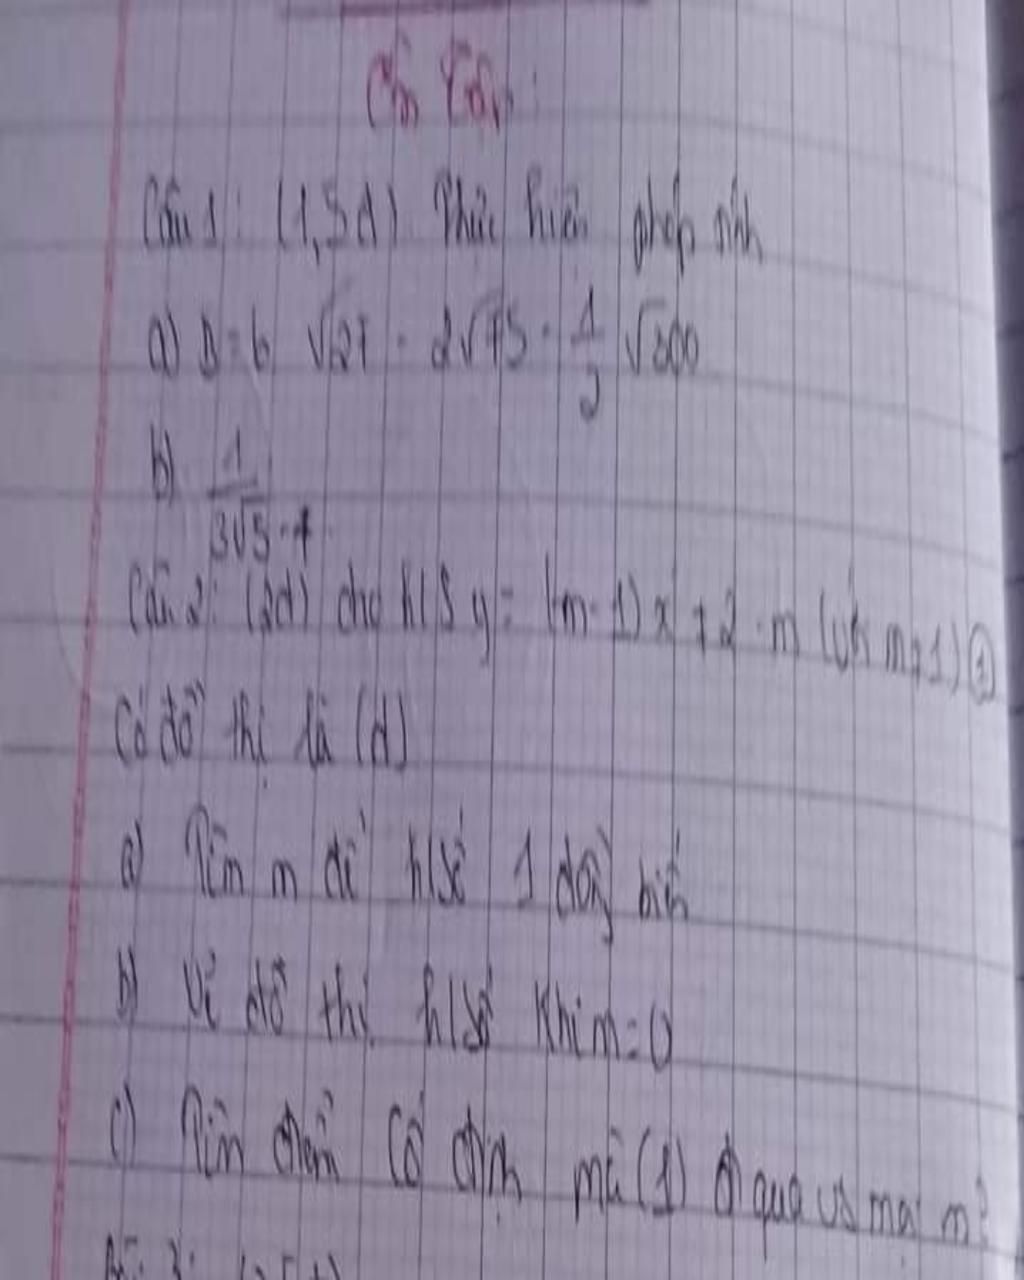 Ôn tập:
Câu 1: (1,5đ) Thực hiện phép tính
a) B = 6 √27 - 2√75 - 1/2 √300
b) 1/(3√5 - 7)
Câu 2: (2đ) cho h/s y = (m-1)x + 2 - m (với m ≠ 1) (1)
Có đồ thị là (d)
a) Tìm m để h/số 1 đồng biến
b) Vẽ đồ thị h/số khi m = 0
c) Tìm điểm cố định mà (1) đi qua vs mọi m?